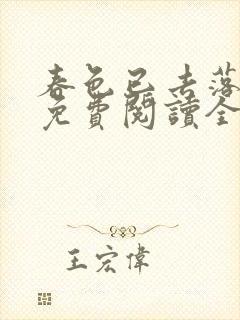 春色已去落
免費閱讀全
王宏偉